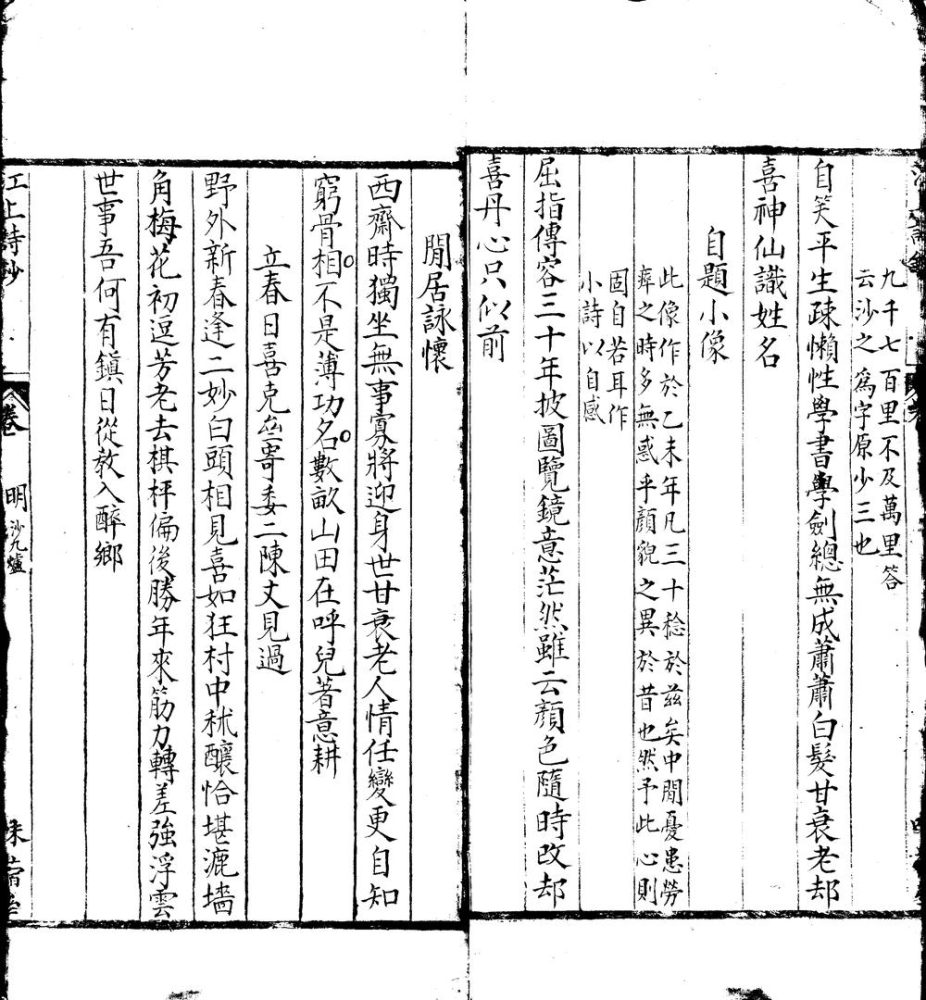 九千七百里不及萬里答
云沙之爲字原少三也
自笑平生疎懶性學書學劍總無成蕭蕭白髮甘衰老却
喜神仙識姓名
自題小像
此像作於乙未年凡三十稔於兹矣中間憂患勞
瘁之時多無惑乎顏貌之異於昔也然予此心則
固自若耳作
小詩以自感
屈指傳容三十年披圖覽鏡意茫然雖云顏色隨時改却
喜丹心只似前
閒居詠懷
西齋時獨坐無事寡將迎身世甘衰老人情任變更自知
窮骨相不是薄功名數畝山田在呼兒著意耕
立春日喜克壑寄委二陳丈見過
野外新春逢二妙白頭相見喜如狂村中秫釀恰堪漉墻
角梅花初逗芳老去棋枰偏後勝年來筋力轉差強浮雲
世事吾何有鎮日從教入醉鄉
江上詩鈔
卷
明
沙九爐